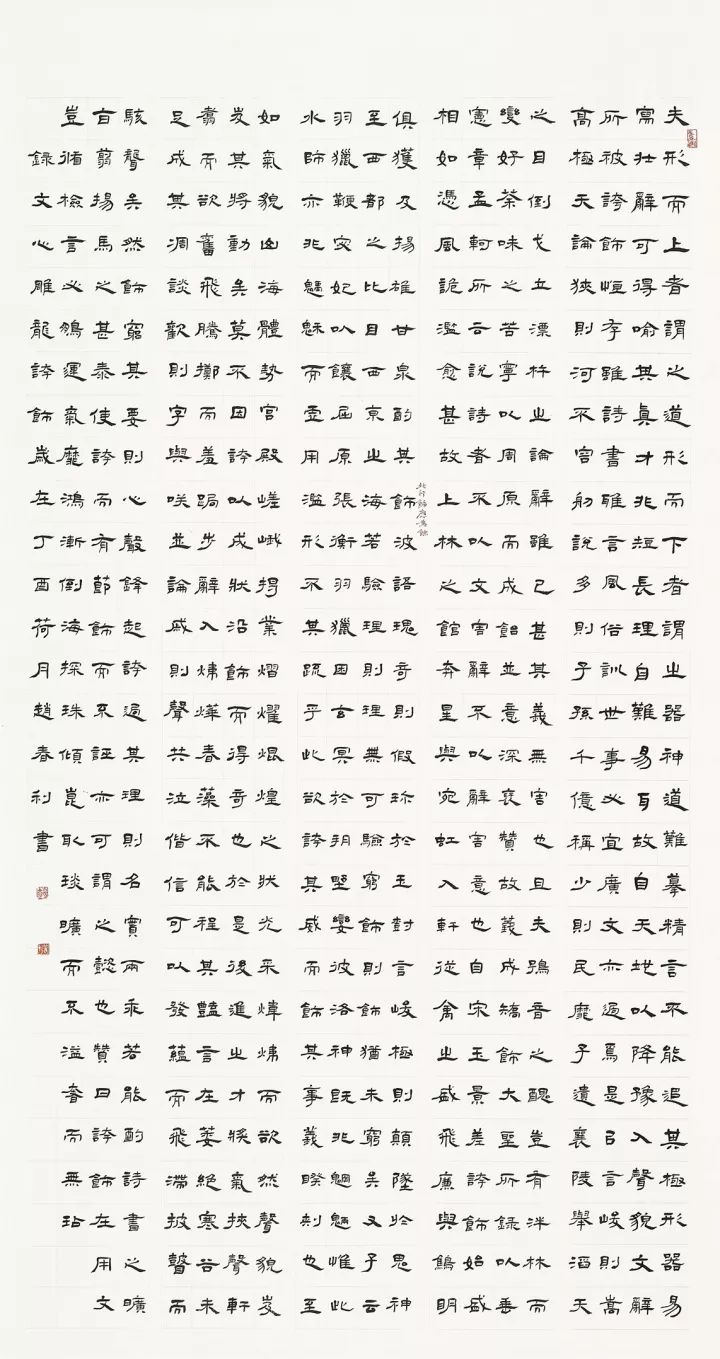 夫形而上者謂之道形而下者謂之器神道難摹精言不能追其極形器易
寫壯辭可得喻其真才非短長理自難易耳故自天地以降豫入聲貌文辭
所被誇飾恒存雖詩書雅言風俗訓世事必宜廣文亦過焉是以言峻則嵩
高極天論狹則河不容舠說多則子孫千億稱少則民靡孑遺襄陵舉滔天
之目倒戈立漂杵之論辭雖已甚其義無害也且夫鴞音之醜豈有泮林而
變好荼味之苦寧以周原而成飴並意深褒贊故義成矯飾大聖所錄以垂
憲章孟軻所云說詩者不以文害辭不以辭害意也自宋玉景差誇飾始盛
相如憑風詭濫愈甚故上林之館奔星與宛虹入軒從禽之盛飛廉與鷦明
此行飾應為餘
俱獲及揚雄甘泉酌其飾波語瑰奇則假珍於玉尌言峻極則顛墜於鬼神
至西都之比目西京之海若驗理則理無可驗窮飾則飾猶未窮矣又子云
羽獵鞭宓妃以饟屈原張衡羽獵困玄冥於朔野孌彼洛神既非魍魎惟此
水師亦非魑魅而虛用濫形不其疏乎此欲誇其威而飾其事義睽剌也至
如氣貌山海體勢宮殿嵯峨揭業熠燿焜煌之狀光采煒煒而欲然聲貌岌
岌其將動矣莫不因誇以成狀沿飾而得奇也於是後進之才獎氣挾聲軒
翥而欲奮飛騰擲而羞跼步辭入煒燁春藻不能程其豔言在萎絕寒谷未
足成其凋談歡則字與咲並論戚則聲共泣偕信可以發蘊而飛滯披瞽而
駭聾矣然飾窮其要則心聲鋒起誇過其理則名實兩乖若能酌詩書之曠
旨翦揚馬之甚泰使誇而有節飾而不誣亦可謂之懿也贊曰誇飾在用文
豈循檢言必鵬運氣靡鴻漸倒海探珠傾崑取琰曠而不溢奢而無玷
錄文心雕龍誇飾歲在丁酉荷月趙春利書